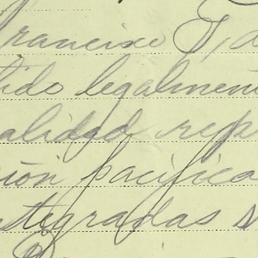 Francisco I,
ido legalmen
alidad rep
ión pacifica
ntegradas s